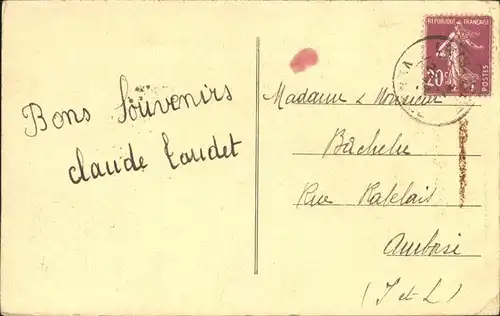 Bons Souvenirs
Claude Laudet
REPUBLIQUE FRANÇAISE
20c
POSTES
Madame & Monsieur
Bachelu
Rue Rabelais
Amboise
(I et L)